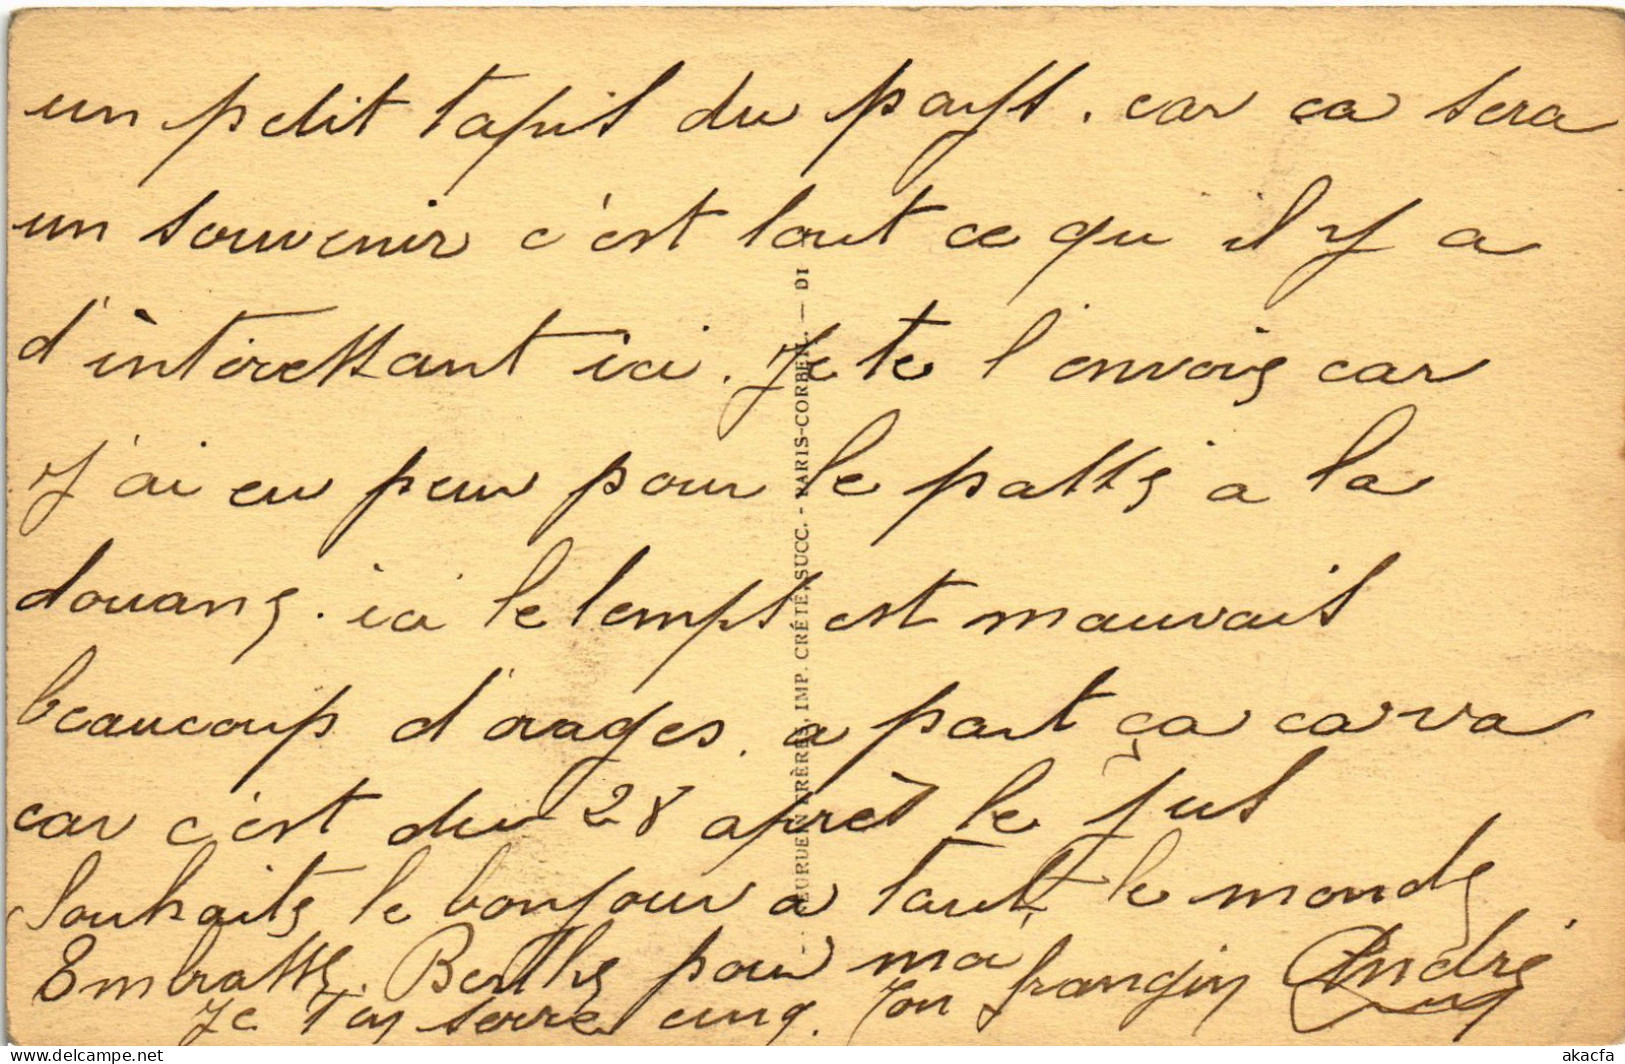 un petit tapis du pays. car ca sera
un souvenir c'est tout ce qu il y a
d'intèressant ici. Je te l'envoie car
j'ai eu peur pour le passe a la
douane. ici le temps est mauvais
beaucoup d'orages. a part ça ca va
car c'est du 28 après le jus
Souhaite le bonjour a tout le monde
Embrasse Berthe pour moi
Je t'en serre cinq. Ton frangin André
LEURDEIN FRÈRES, IMP. CRÉTÉ, SUCC. - PARIS-CORBEIL. — DI
akacfa